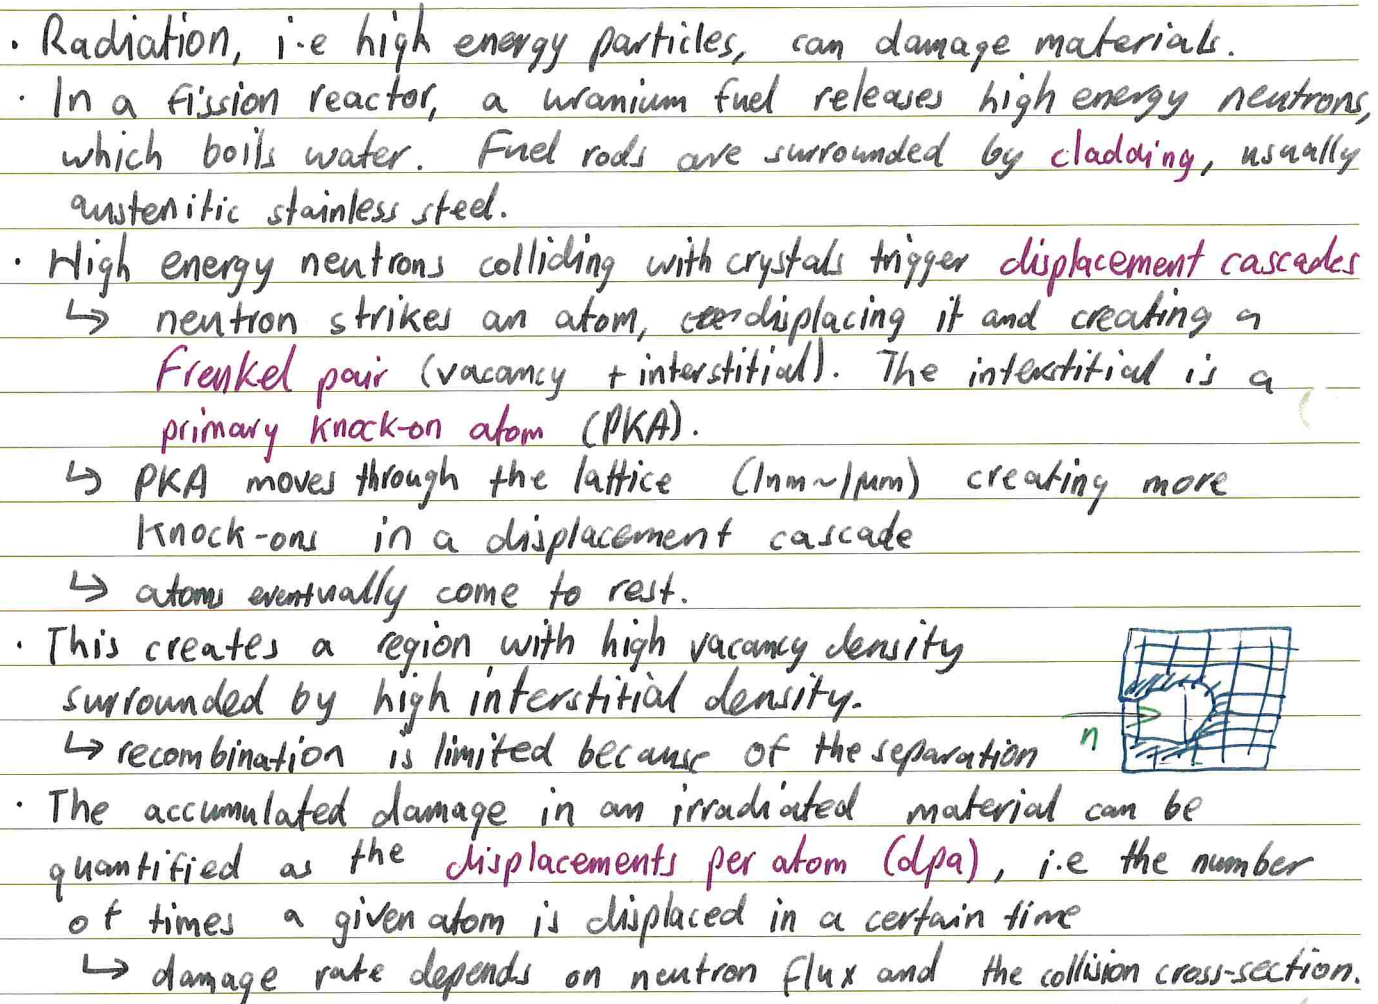 · Radiation, i.e high energy particles, can damage materials.
· In a fission reactor, a uranium fuel releases high energy neutrons,
which boils water. Fuel rods are surrounded by cladding, usually
austenitic stainless steel.
· High energy neutrons colliding with crystals trigger displacement cascades
↳ neutron strikes an atom, displacing it and creating a
Frenkel pair (vacancy + interstitial). The interstitial is a
primary knock-on atom (PKA).
↳ PKA moves through the lattice (1nm~1μm) creating more
knock-ons in a displacement cascade
↳ atoms eventually come to rest.
· This creates a region with high vacancy density
surrounded by high interstitial density.
↳ recombination is limited because of the separation
n
· The accumulated damage in an irradiated material can be
quantified as the displacements per atom (dpa), i.e the number
of times a given atom is displaced in a certain time
↳ damage rate depends on neutron flux and the collision cross-section.